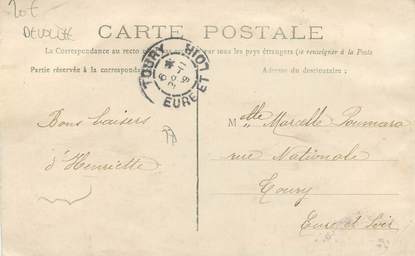 20€
CARTE POSTALE
La Correspondance au recto pour tous les pays étrangers (se renseigner à la Poste
Partie réservée à la correspondance
Adresse du destinataire;
TOURY
EURE ET LOIR
Bons baisers
d'Henriette
Melle Marcelle
rue Nationale
Toury
Eure et Loir